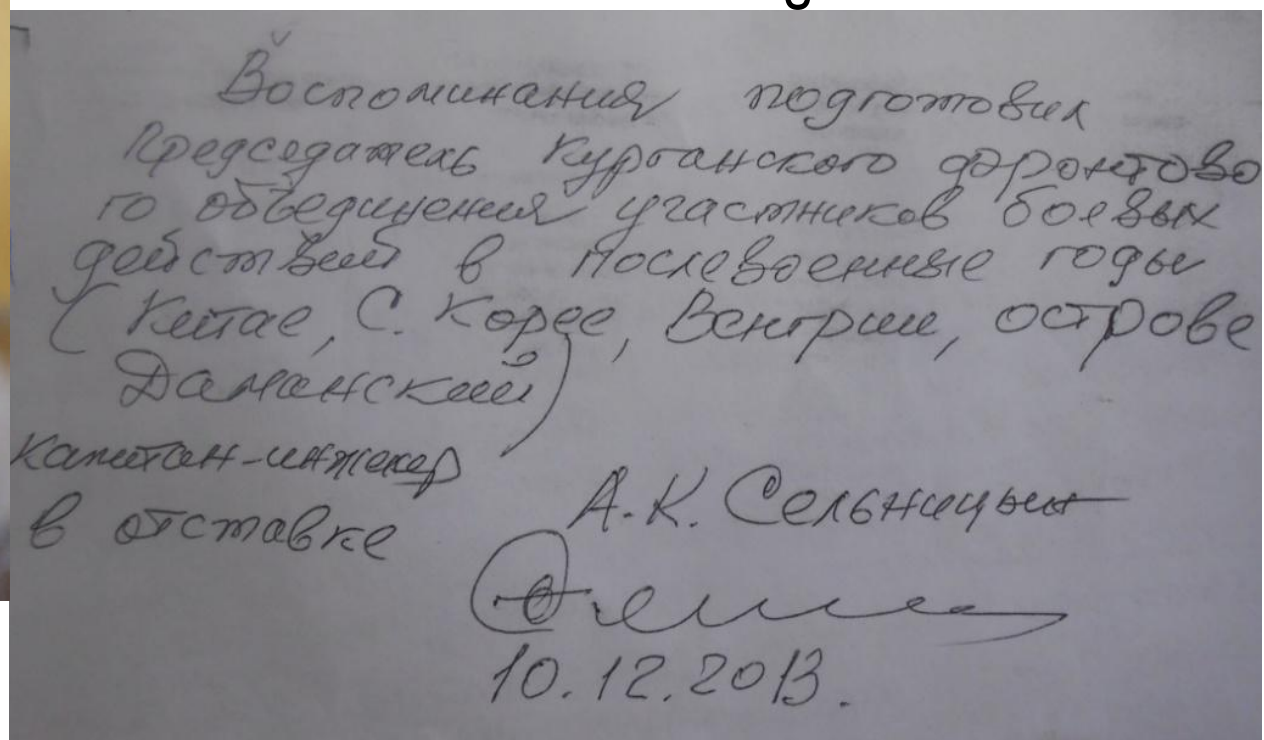 Воспоминания подготовил
Председатель Курганского фронтово
го объединения участников боевых
действий в послевоенные годы
(Китае, С. Корее, Венгрии, острове
Даманский)
капитан-инженер
в отставке
А.К. Сельницын
10.12.2013.